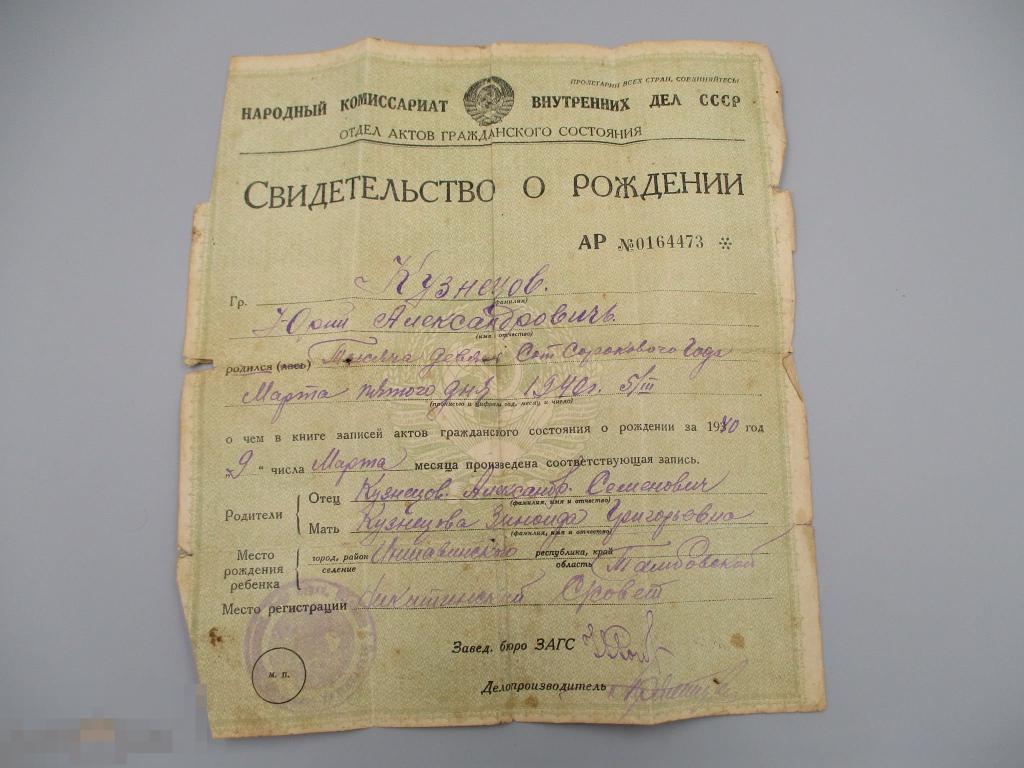 ПРОЛЕТАРИИ ВСЕХ СТРАН, СОЕДИНЯЙТЕСЬ!
НАРОДНЫЙ КОМИССАРИАТ ВНУТРЕННИХ ДЕЛ СССР
ОТДЕЛ АКТОВ ГРАЖДАНСКОГО СОСТОЯНИЯ
СВИДЕТЕЛЬСТВО О РОЖДЕНИИ
АР №0164473
Гр. Кузнецов.
(фамилия)
Юрий Александровичь
(имя и отчество)
родился (лась) Тысяча девят Сот Сорокового Года
Марта пятого дня 1940 г. 5/III
(прописью и цифрами год, месяц и число)
о чем в книге записей актов гражданского состояния о рождении за 1940 год
„9" числа Марта месяца произведена соответствующая запись.
Родители
Отец Кузнецов Александр Семенович
(фамилия, имя и отчество)
Мать Кузнецова Зиноида Григорьевна
(фамилия, имя и отчество)
Место рождения ребенка
город, район селение
республика, край область Тамбовской
Место регистрации Совет
Завед. бюро ЗАГС
м. п.
Делопроизводитель